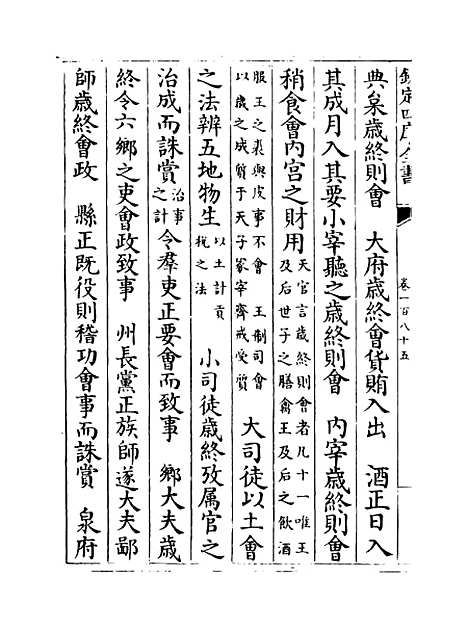 欽定四庫全書
卷一百八十五
典枲歲終則會　大府歲終會貨賄入出　酒正日入
其成月入其要小宰聽之歲終則會　內宰歲終則會
稍食會內宮之財用
天官言歲終則會者凡十一唯王
及后世子之膳禽王及后之飲酒
服王之裘與皮事不會　王制司會
以歲之成質于天子冢宰齊戒受質
大司徒以土會
之法辨五地物生
以土計貢
稅之法
小司徒歲終攷属官之
治成而誅賞
治事
之計
令羣吏正要會而致事　鄉大夫歲
終令六鄉之吏會政致事　州長黨正族師遂大夫鄙
師歲終會政　縣正既役則稽功會事而誅賞　泉府